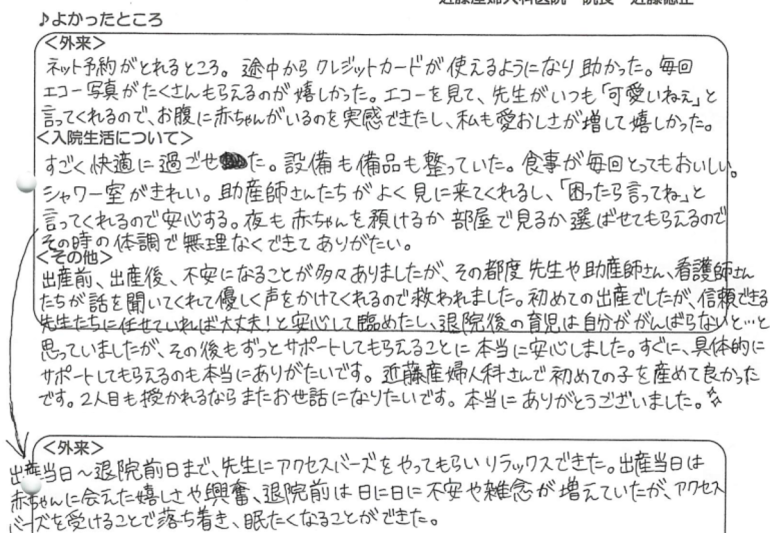 近藤産婦人科医院 院長 近藤憲正
♪よかったところ
<外来>
ネット予約がとれるところ。途中からクレジットカードが使えるようになり助かった。毎回
エコー写真がたくさんもらえるのが嬉しかった。エコーを見て、先生がいつも「可愛いねぇ」と
言ってくれるので、お腹に赤ちゃんがいるのを実感できたし、私も愛おしさが増して嬉しかった。
<入院生活について>
すごく快適に過ごせた。設備も備品も整っていた。食事が毎回とってもおいしい。
シャワー室がきれい。助産師さんたちがよく見に来てくれるし、「困ったら言ってね」と
言ってくれるので安心する。夜も赤ちゃんを預けるか部屋で見るか選ばせてもらえるので
その時の体調で無理なくできてありがたい。
<その他>
出産前、出産後、不安になることが多々ありましたが、その都度先生や助産師さん、看護師さん
たちが話を聞いてくれて優しく声をかけてくれるので救われました。初めての出産でしたが、信頼できる
先生たちに任せていれば大丈夫!と安心して臨めたし、退院後の育児は自分ががんばらないと…と
思っていましたが、その後もずっとサポートしてもらえることに本当に安心しました。すぐに、具体的に
サポートしてもらえるのも本当にありがたいです。近藤産婦人科さんで初めての子を産めて良かった
です。2人目も授かれるならまたお世話になりたいです。本当にありがとうございました。☆
<外来>
出産当日〜退院前日まで、先生にアクセスバーズをやってもらいリラックスできた。出産当日は
赤ちゃんに会えた嬉しさや興奮、退院前は日に日に不安や雑念が増えていたが、アクセス
バーズを受けることで落ち着き、眠たくなることができた。